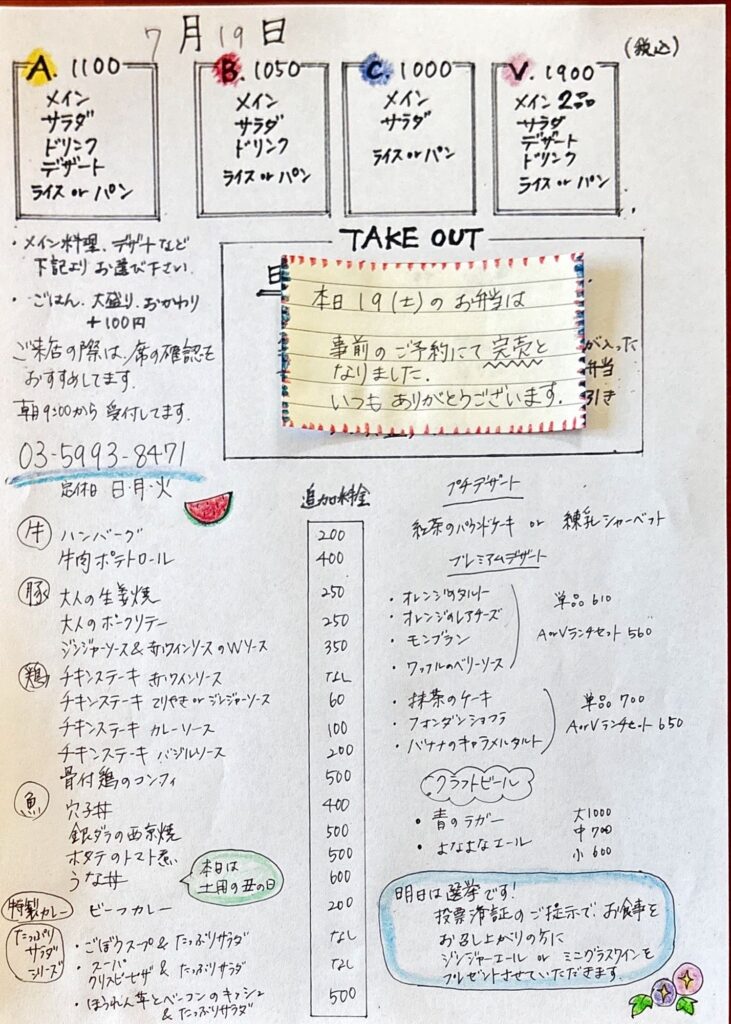 7月19日
(税込)
A. 1100
メイン
サラダ
ドリンク
デザート
ライス or パン
B. 1050
メイン
サラダ
ドリンク
ライス or パン
C. 1000
メイン
サラダ
ライス or パン
V. 1900
メイン 2品
サラダ
デザート
ドリンク
ライス or パン
・メイン料理、デザートなど
下記より お選び下さい.
・ごはん、大盛り、おかわり
+100円
ご来店の際は、席の確認を
おすすめしてます.
朝9:00から 受付してます.
03-5993-8471
定休日 日・月・火
TAKE OUT
本日 19(土)の お弁当は
事前の ご予約にて 完売と
なりました.
いつも ありがとうございます.
が入った
弁当
引き
追加料金
牛 ハンバーグ 200
牛肉ポテトロール 400
豚 大人の生姜焼 250
大人のポークソテー 250
ジンジャーソース&赤ワインソースのWソース 350
鶏 チキンステーキ 赤ワインソース なし
チキンステーキ てりやき or ジンジャーソース 60
チキンステーキ カレーソース 100
チキンステーキ バジルソース 200
骨付鶏のコンフィ 500
魚 穴子丼 400
銀ダラの西京焼 500
ホタテのトマト煮 500
うな丼 600
本日は
土用の丑の日
特製カレー ビーフカレー 200
たっぷり
サラダ
シリーズ
・ごぼうスープ&たっぷりサラダ なし
・スーパー
クリスピーピザ & たっぷりサラダ なし
・ほうれん草とベーコンのキッシュ
& たっぷりサラダ 500
プチデザート
紅茶のパウンドケーキ or 練乳シャーベット
プレミアムデザート
・オレンジのタルト
・オレンジのレアチーズ
・モンブラン
・ワッフルのベリーソース
単品 610
AorVランチセット 560
・抹茶のケーキ
・フォンダンショコラ
・バナナのキャラメルタルト
単品 700
AorVランチセット 650
クラフトビール
・青のラガー
・よなよなエール
大 1000
中 700
小 600
明日は選挙です!
投票済証の ご提示で、お食事を
お召し上がりの方に
ジンジャーエール or ミニグラスワインを
プレゼントさせていただきます.